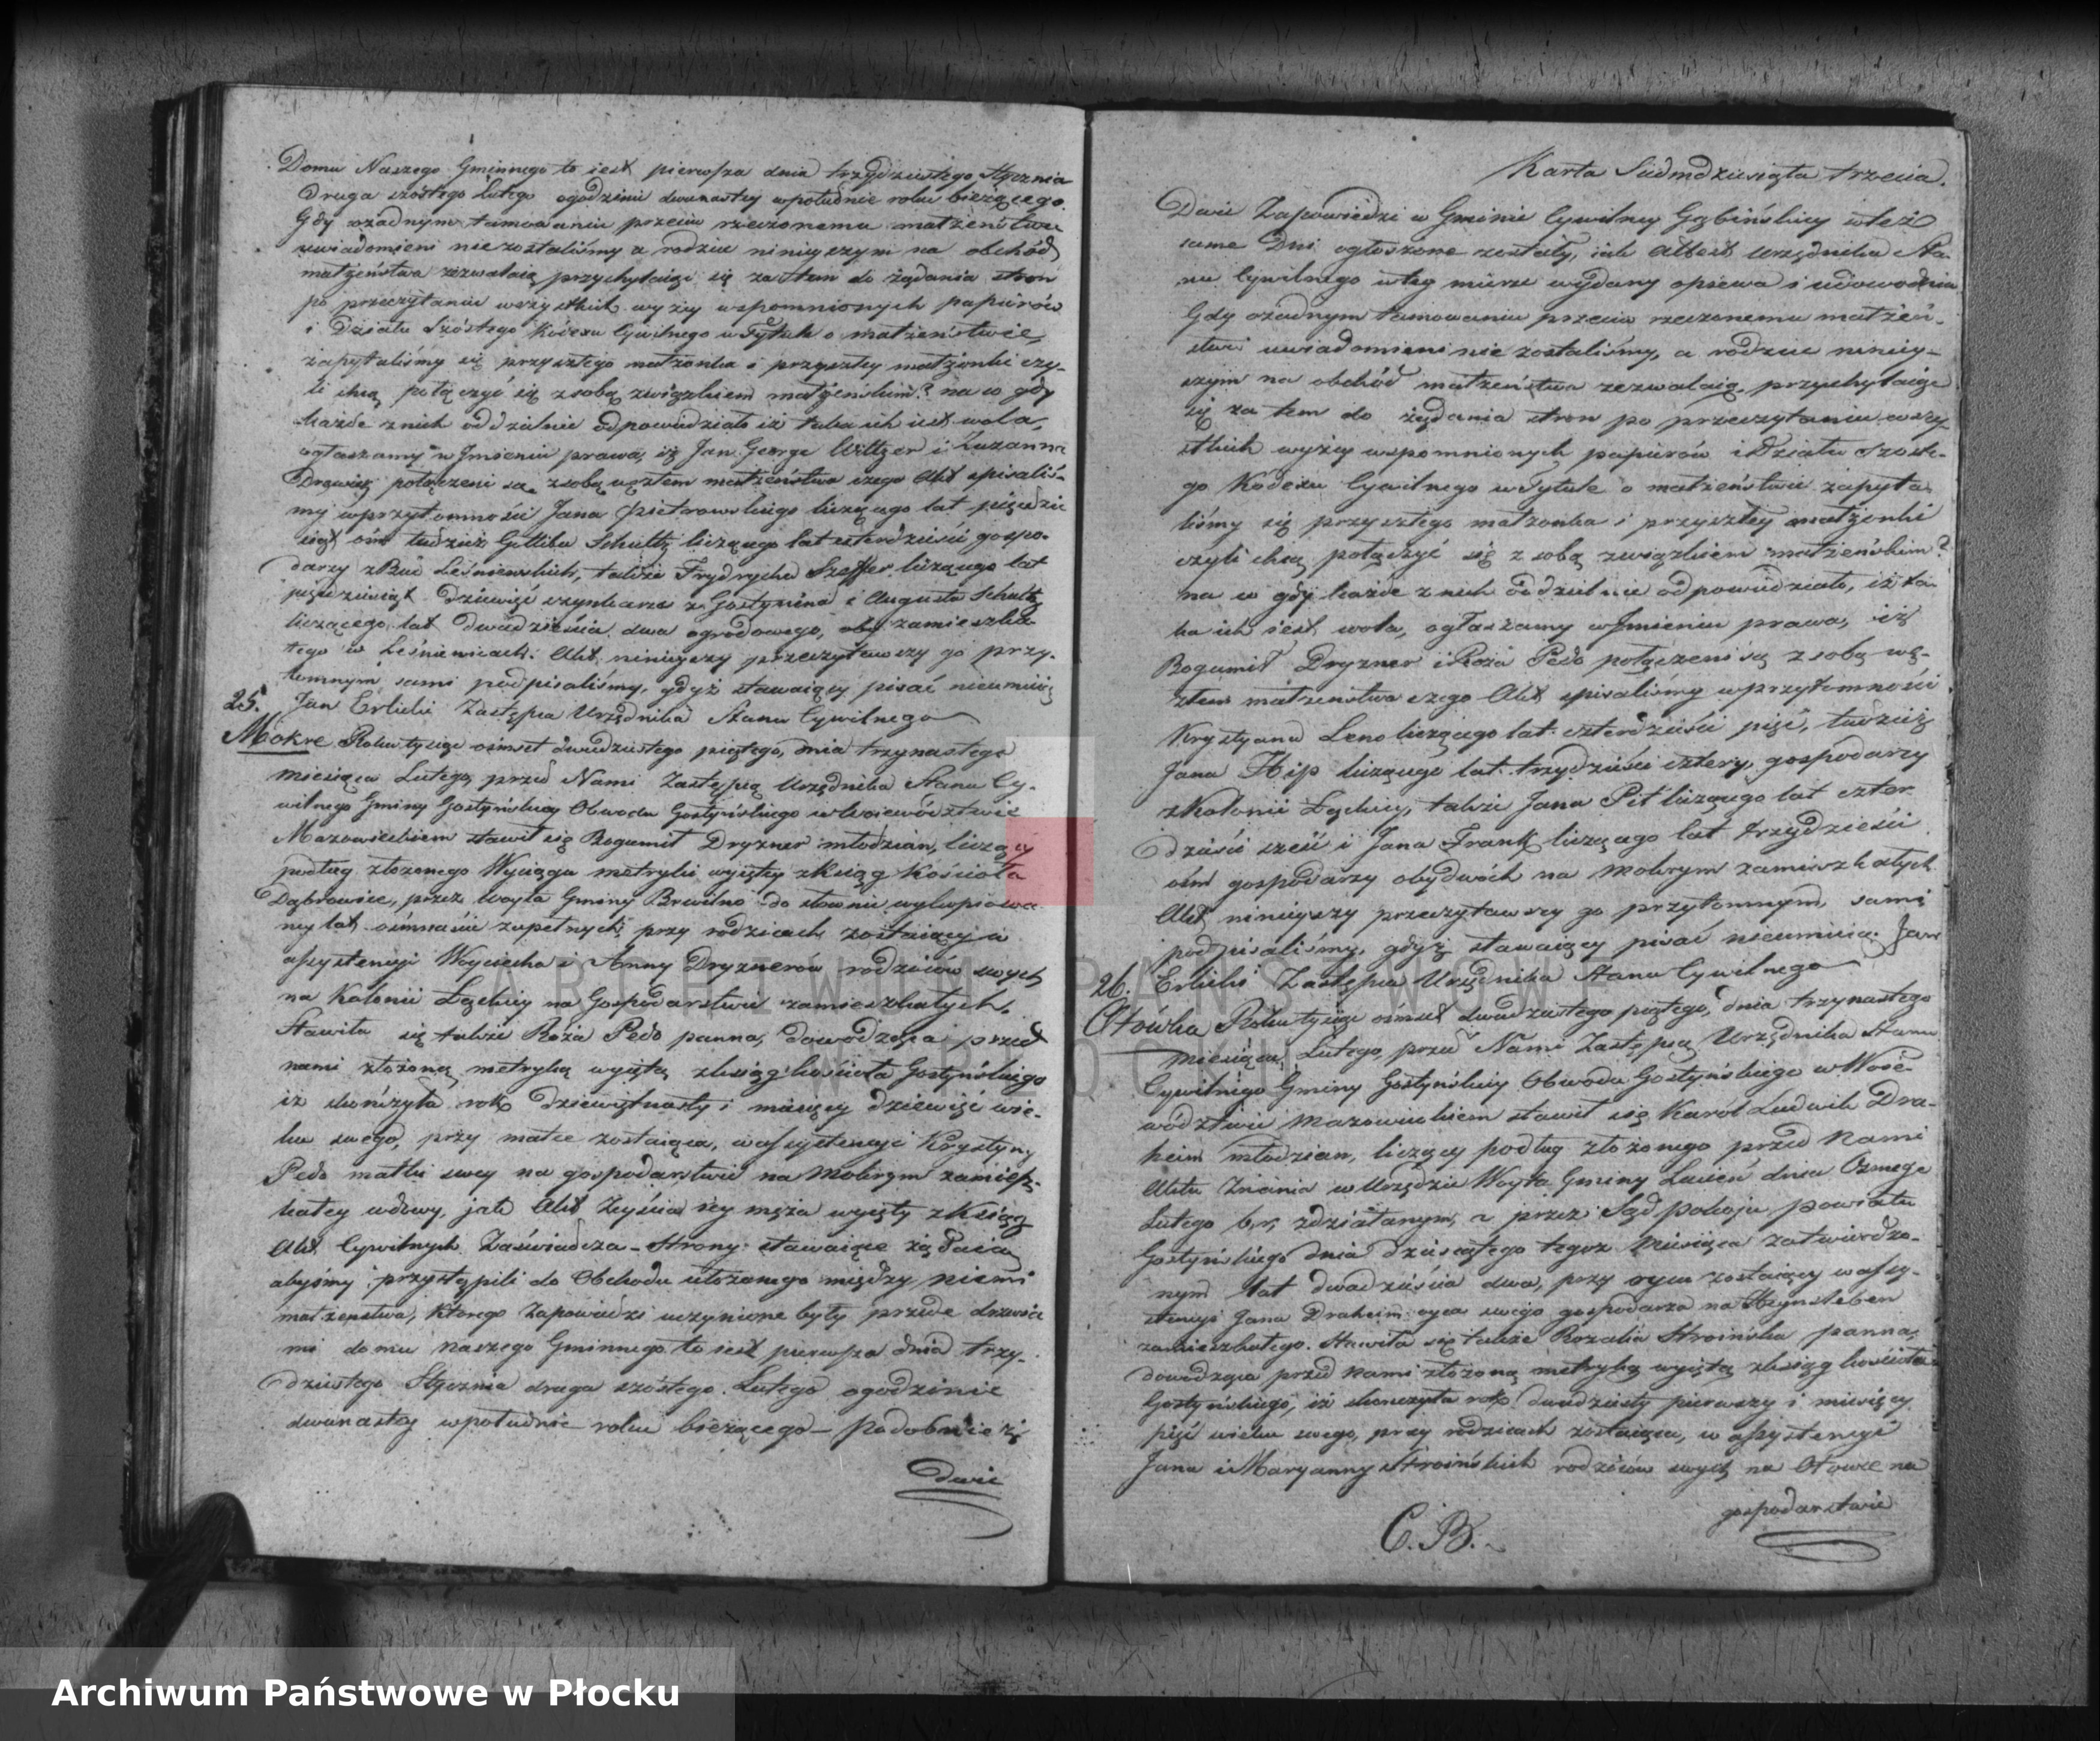 Domu Naszego Gminnego to iest pierwsza dnia trzydziestego Stycznia
druga szóstego Lutego ogodzinie dwunastey wpołudnie roku bieżącego.
Gdy ożadnym tamowaniu przeciw rzeczonemu małżeństwu
uwiadomieni niezostaliśmy a rodzice ninieyszym na obchód
małżeństwa zezwalaią przychylaiąc się zatem do żądania stron
po przeczytaniu wszystkich wyżey wspomnionych papierów
i Działu Szóstego Kodexu Cywilnego w Tytule o małżeństwie,
zapytaliśmy się przyszłego małżonka i przyszłey małżonki czy-
li chcą połączyć się zsobą związkiem małżeńskim? na co gdy
każde znich oddzielnie odpowiedziało iż taka ich iest wola,
ogłaszamy w Jmieniu prawa, iż Jan George Wiltzer i Zuzanna
połączeni są zsobą węzłem małżeństwa czego Akt spisaliś-
my wprzytomności Jana Pietrowskiego liczącego lat pięćdzie
siąt ośm tudzież Gottliba Schultz liczącego lat czterdzieści gospo-
darzy zBud Leśniewskich, także Frydrycha Szeffer liczącego lat
pięćdziesiąt dziewięć szynkarza z Gostynina i Augusta Schultz
liczącego lat dwadzieścia dwa ogrodowego, obu zamieszka-
łego w Leśniewicach. Akt ninieyszy przeczytawszy go przy-
tomnym sami podpisaliśmy, gdyż stawaiący pisać nieumieią
Jan Erlicki Zastępca Urzędnika Stanu Cywilnego
25.
Mokre Roku tysiąc ośmset dwudziestego piątego, dnia trzynastego
miesiąca Lutego, przed Nami Zastępcą Urzędnika Stanu Cy-
wilnego Gminy Gostyńskiey Obwodu Gostyńskiego w Woiewództwie
Mazowieckiem stawił się Bogumił Dryzner młodzian, liczący
podług złożonego Wyciągu metryki wyiętey zKsiąg Kościoła
Dąbrowiec, przez Woyta Gminy Brwilno do słownie wykopiowa
ney lat ośmnaście zupełnych, przy rodzicach zostaiący a
assystencyi Woyciecha i Anny Dryznerów rodziców swych
na Kolonii Łąckiey na Gospodarstwie zamieszkałych.
Stawiła się także Róża Pedo panna, dowodząca przed
nami złożoną metryką wyiętą zksiąg kościoła Gostyńskiego
iż skończyła rok dziewiętnasty i miesięcy dziewięć wie-
ku swego, przy matce zostaiąca, w assystencyi Krystyny
Pedo matki swey na gospodarstwie na Mokrym zamiesz-
kałey wdowy, jak Akt Zeyścia iey męża wyięty zKsiąg
Akt Cywilnych Zaświadcza - Strony stawaiące żądaią
abyśmy przystąpili do Obchodu ułożonego między niemi
małżeństwa, którego Zapowiedzi uczynione były przede drzwia
mi domu naszego Gminnego to iest pierwsza dnia trzy-
dziestego Stycznia druga szóstego Lutego ogodzinie
dwunastey wpołudnie roku bieżącego - podobnie iż
dwie
Karta Siedmdziesiąta trzecia.
Dwie Zapowiedzi w Gminie Cywilney Gąbińskiey wteż
same Dni ogłoszone zostały, iak Attest Urzędnika Sta-
nu Cywilnego wtey mierze wydany opiewa i udowadnia
Gdy ożadnym tamowaniu przeciw rzeczonemu małżeń-
stwu uwiadomieni nie zostaliśmy, a rodzice niniey-
szym na obchód małżeństwa zezwalaią, przychylaiąc
się za tem do żądania stron po przeczytaniu wszy-
stkich wyżey wspomnionych papierów i Działu Szoste-
go Kodexu Cywilnego w Tytule o małżeństwie zapyta
liśmy się przyszłego małżonka i przyszłey małżonki
czyli chcą połączyć się z sobą związkiem małżeńskim?
na co gdy każde z nich oddzielnie odpowiedziało, iż ta-
ka ich iest wola, ogłaszamy w Jmieniu prawa, iż
Bogumił Dryzner i Róża Pedo połączeni są z sobą wę-
złem małżeństwa czego Akt spisaliśmy wprzytomności
Krystyana Leno liczącego lat czterdzieści pięć, tudzież
Jana Hip liczącego lat trzydzieści cztery, gospodarzy
zKolonii Łąckiey, także Jana Pit liczącego lat czter-
dzieści sześć i Jana Frank liczącego lat trzydzieści
ośm gospodarzy obydwóch na Mokrym zamieszkałych
Akt ninieyszy przeczytawszy go przytomnym, sami
podpisaliśmy, gdyż stawaiący pisać nieumieią. Jan
Erlicki Zastępca Urzędnika Stanu Cywilnego
26.
Otówka Roku tysiąc ośmset dwudziestego piątego, dnia trzynastego
miesiąca Lutego przed Nami Zastępcą Urzędnika Stanu
Cywilnego Gminy Gostyńskiey Obwodu Gostyńskiego w Woie-
wództwie Mazowieckiem stawił się Karól Ludwik Dra-
heim młodzian, liczący podług złożonego przed Nami
Aktu Znania w Urzędzie Woyta Gminy Lucień dnia Osmego
Lutego b.r. zdziałanym, a przez Sąd pokoju powiatu
Gostyńskiego dnia dziesiątego tegoż Miesiąca zatwierdzo-
nym lat dwadzieścia dwa, przy oycu zostaiący w assy-
stencyi Jana Draheim oyca swego gospodarza na Heynsleben
zamieszkałego. Stawiła się także Rozalia Stroińska panna,
dowodząca przed nami złożoną metryką wyiętą zksiąg kościoła
Gostyńskiego, iż skonczyła rok dwudziesty pierwszy i miesięcy
pięć wieku swego, przy rodzicach zostaiąca, w assystencyi
Jana i Maryanny Stroińskich rodziców swych na Otowce na
gospodarstwie
C.B.
ARCHIWUM PAŃSTWOWE
W PŁOCKU
Archiwum Państwowe w Płocku